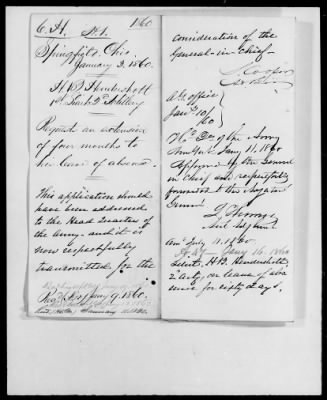 C. H. No 1. 1860
Springfield, Ohio.
January 3, 1860.
H. B. Hendershott
1st Lieut 2d Artillery
Request an extension
of four months to
her leave of absence.
This application should
have been addressed
to the Head Quarters of
the Army and it is
now respectfully
transmitted for the
Jany 9, 1860.
January
consideration of the
General-in-Chief
S. Cooper
A. G. Office
Jany 10/60
Hd Qrs of the Army
New York Jany 11, 1860
Approved by the General
in Chief and respectfully
forwarded to the Adjutant
General
L. Thomas
Jany 16. 1860
Lieut. H. B. Hendershott
2 Arty, on leave of abs
sence for sixty days.